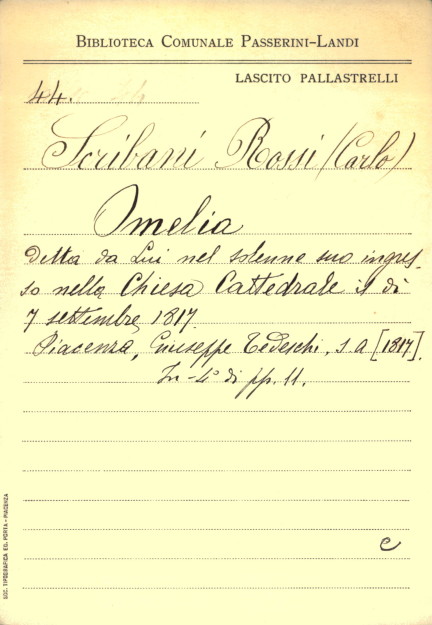 BIBLIOTECA COMUNALE PASSERINI-LANDI
LASCITO PALLASTRELLI
44.
Scribani Rossi (Carlo)
Omelia
Detta da Lui nel solenne suo ingres-
so nella Chiesa Cattedrale il dì
7 settembre 1817.
Piacenza, Giuseppe Tedeschi, s. a [1817].
In-4° di pp. 11.
e
SOC. TIPOGRAFICA ED. PORTA - PIACENZA